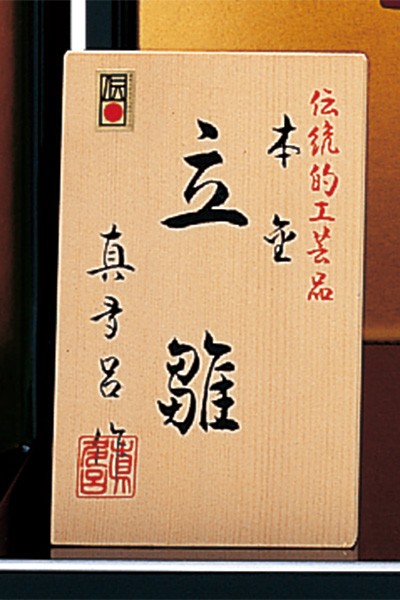 伝統的工芸品
本金
立雛
真多呂作
伝